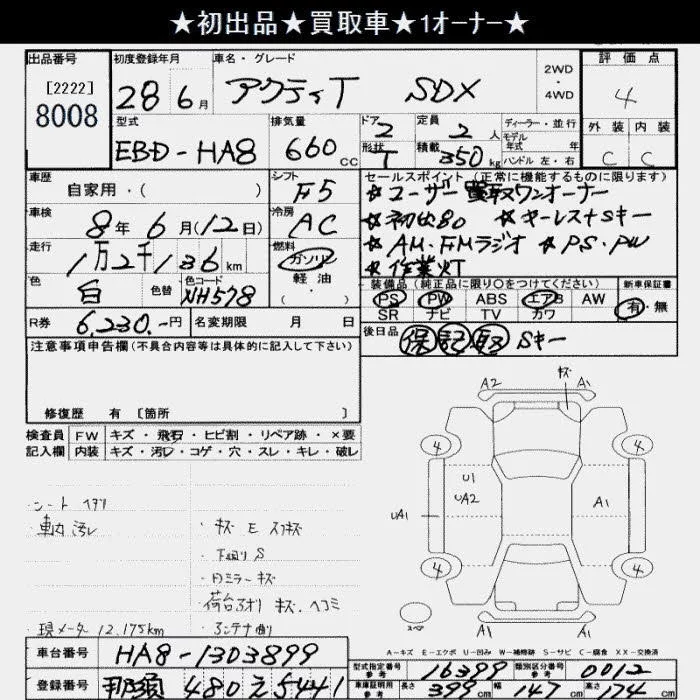 ★初出品★買取車★1オーナー★
出品番号 初度登録年月 車名・グレード 2WD・4WD 評価点
[2222]
8008
28 6月 アクティT SDX 4
型式 排気量 ドア 2 定員 2人 ディーラー・並行 外装 内装
EBD-HA8 660cc 形状 T 積載 350kg モデル年式 年 C C
ハンドル 左・右
車歴 シフト セールスポイント(正常に機能するものに限ります)
自家用・( ) F5 ★ユーザー買取ワンオーナー
車検 冷房 ★初出品 ★キーレス+Sキー
8年6月(12日) AC ★AM・FMラジオ ★PS・PW
走行 燃料 ★作業灯
1万2千136km ガソリン
軽油
・( )
色 色替 色コード 装備品(純正品に限り○をつけてください) 新車保証書
白 NH578 PS PW ABS エアB AW 有・無
SR ナビ TV カワ
R券 6,230.-円 名変期限 月 日 後日品 保 記 取 Sキー
注意事項申告欄(不具合内容等は具体的に記入して下さい)
修復歴 有 [箇所 ]
検査員 FW キズ・飛石・ヒビ割・リペア跡・×要
記入欄 内装 キズ・汚レ・コゲ・穴・スレ・キレ・破レ
・シート ヘタリ
・車内 汚レ
・下廻り S
・ミラー キズ
・荷台アオリ キズ、ヘコミ
・現メーター 12,175km ・アンテナ曲り
A2 キズ A1
4 4
U1
UA2 A1
UA1
4 4
スペア
A1 A1
A-キズ E-エクボ U-凹み W-補修跡 S-サビ C-腐食 XX-交換済
車台番号 HA8-1303899
登録番号 那須 480 え 5441
型式指定番号 参考 16399 類別区分番号 参考 0012
車庫証明用 参考 長さ 399cm 幅 147cm 高さ 174cm